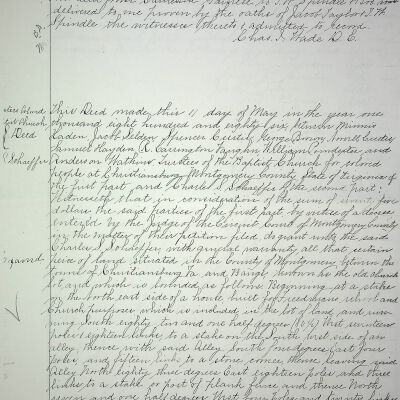 delivered to me proven by the oaths of Jacob Taylor & J. W.
Spindle the witnesses thereto & admitted to record.
Chas. I. Wade D. C.
This Deed made this 11 day of May in the year one
thousand eight hundred and eighty six between Minnis
Headen Jacob Selden Spencer Curtis George Binor Norvell Curtis
Samuel Hayden R. Carrington Vaughn William Poindexter and
Anderson Watkins Trustees of the Baptist Church for colored
people at Christiansburg Montgomery County State of Virginia of
the first part and Charles S. Schaeffer of the second part:
Witnesseth that in consideration of the sum of
dollars the said parties of the first part by virtue of a decree
entered by the Judge of the Circuit Court of Montgomery County
in the matter of their petition filed do grant unto the said
Charles S. Schaeffer with general warranty all that certain
piece of land situated in the County of Montgomery between the
town of Christiansburg Va and Bangs known as the old church
lot and which is bounded as follows Beginning at a stake
on the North east side of a house built for freedmens school and
Church purposes which is included in the lot of land and run
ning South eighty two and one half degrees
poles & eighteen links to a stake on the South west side of an
alley, thence with said alley South five degrees East four
poles and fifteen links to a stone corner thence leaving said
Alley North eighty three degrees East eighteen poles and three
links to a stake or post of plank fence and thence North
seven and one half degrees West four poles and twenty links
Church
Deed
Schaeffer
Examd